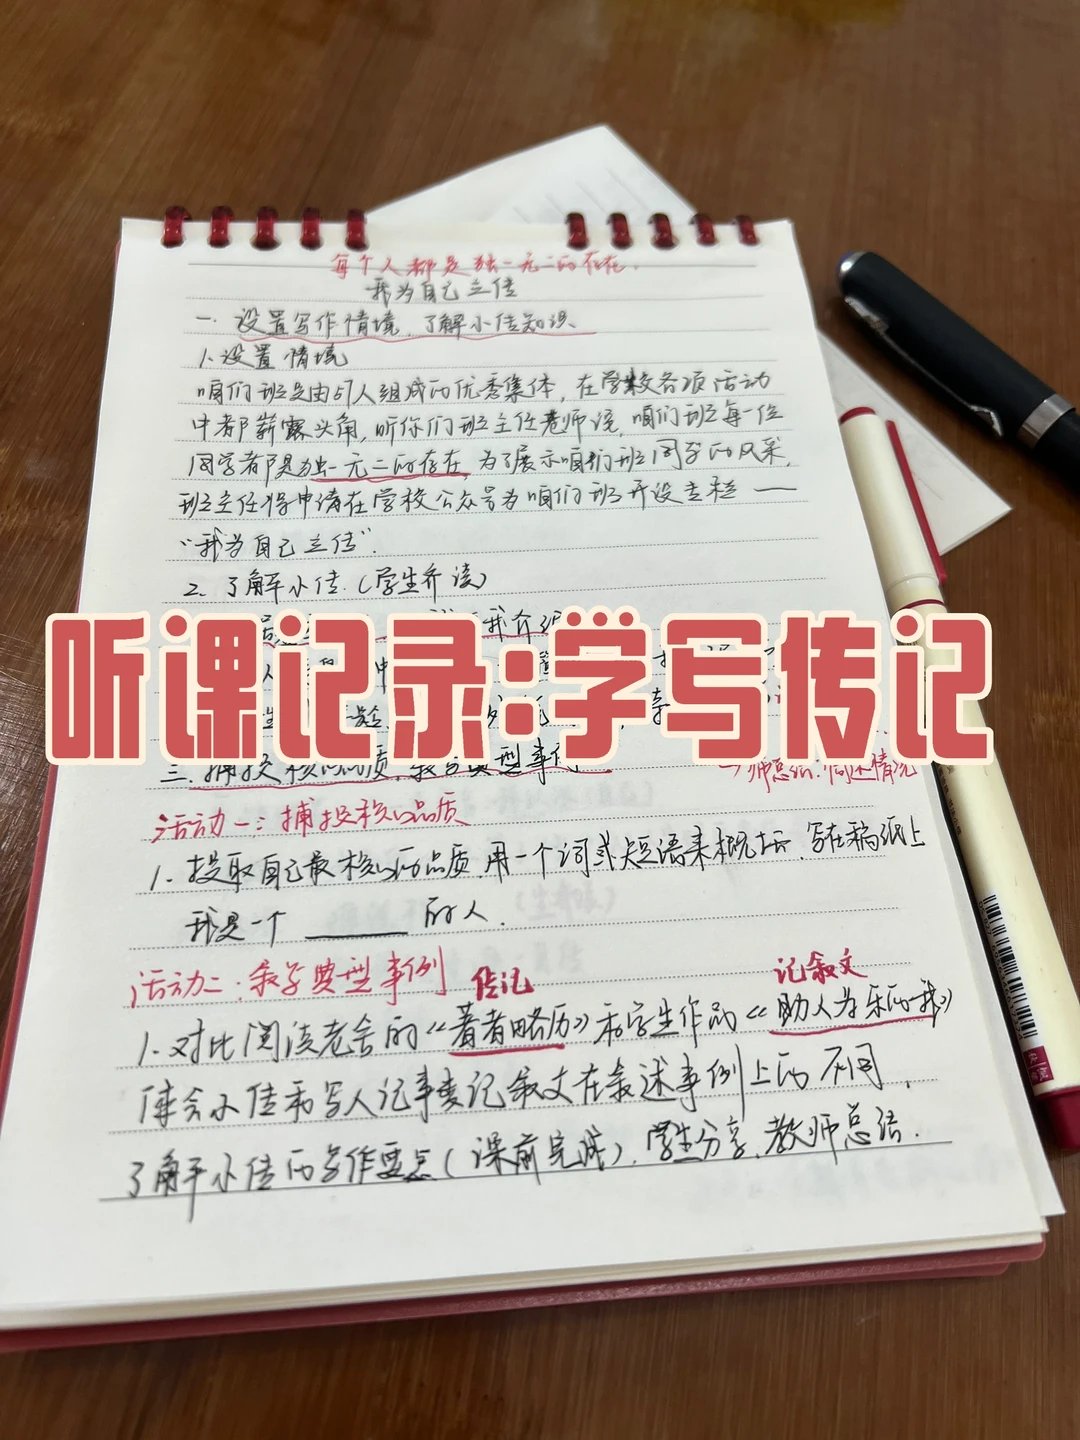 每个人都是独一无二的存在.
我为自己立传
一. 设置写作情境,了解小传知识.
1.设置情境
咱们班是由51人组成的优秀集体,在学校各项活动
中都崭露头角,听你们班主任老师说,咱们班每一位
同学都是独一无二的存在,为了展示咱们班同学的风采,
班主任将申请在学校公众号为咱们班开设专栏——
“我为自己立传”.
2.了解小传.(学生齐读)
我介绍
听课记录:学写传记
三.捕捉核心品质,叙写典型事例
→师总结:简述情况
活动一:捕捉核心品质
1.提取自己最核心的品质,用一个词或短语来概括,写在稿纸上
我是一个 的人.
活动二:叙写典型事例
传记 记叙文
1.对比阅读老舍的《著者略历》和学生作品《助人为乐的我》
体会小传和写人记事类记叙文在叙述事例上的不同,
了解小传的写作要点(课前完成),学生分享,教师总结.